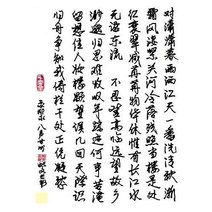 对潇潇暮雨洒江天一番洗清秋渐
霜风凄紧关河冷落残照当楼是处
红衰翠减苒苒物华休惟有长江水
无语东流 不忍登高临远望故乡
渺邈归思难收叹年来踪迹何事苦淹
留想佳人妆楼颙望误几回天际识
归舟争知我倚栏干处正恁凝愁
柳永八声甘州